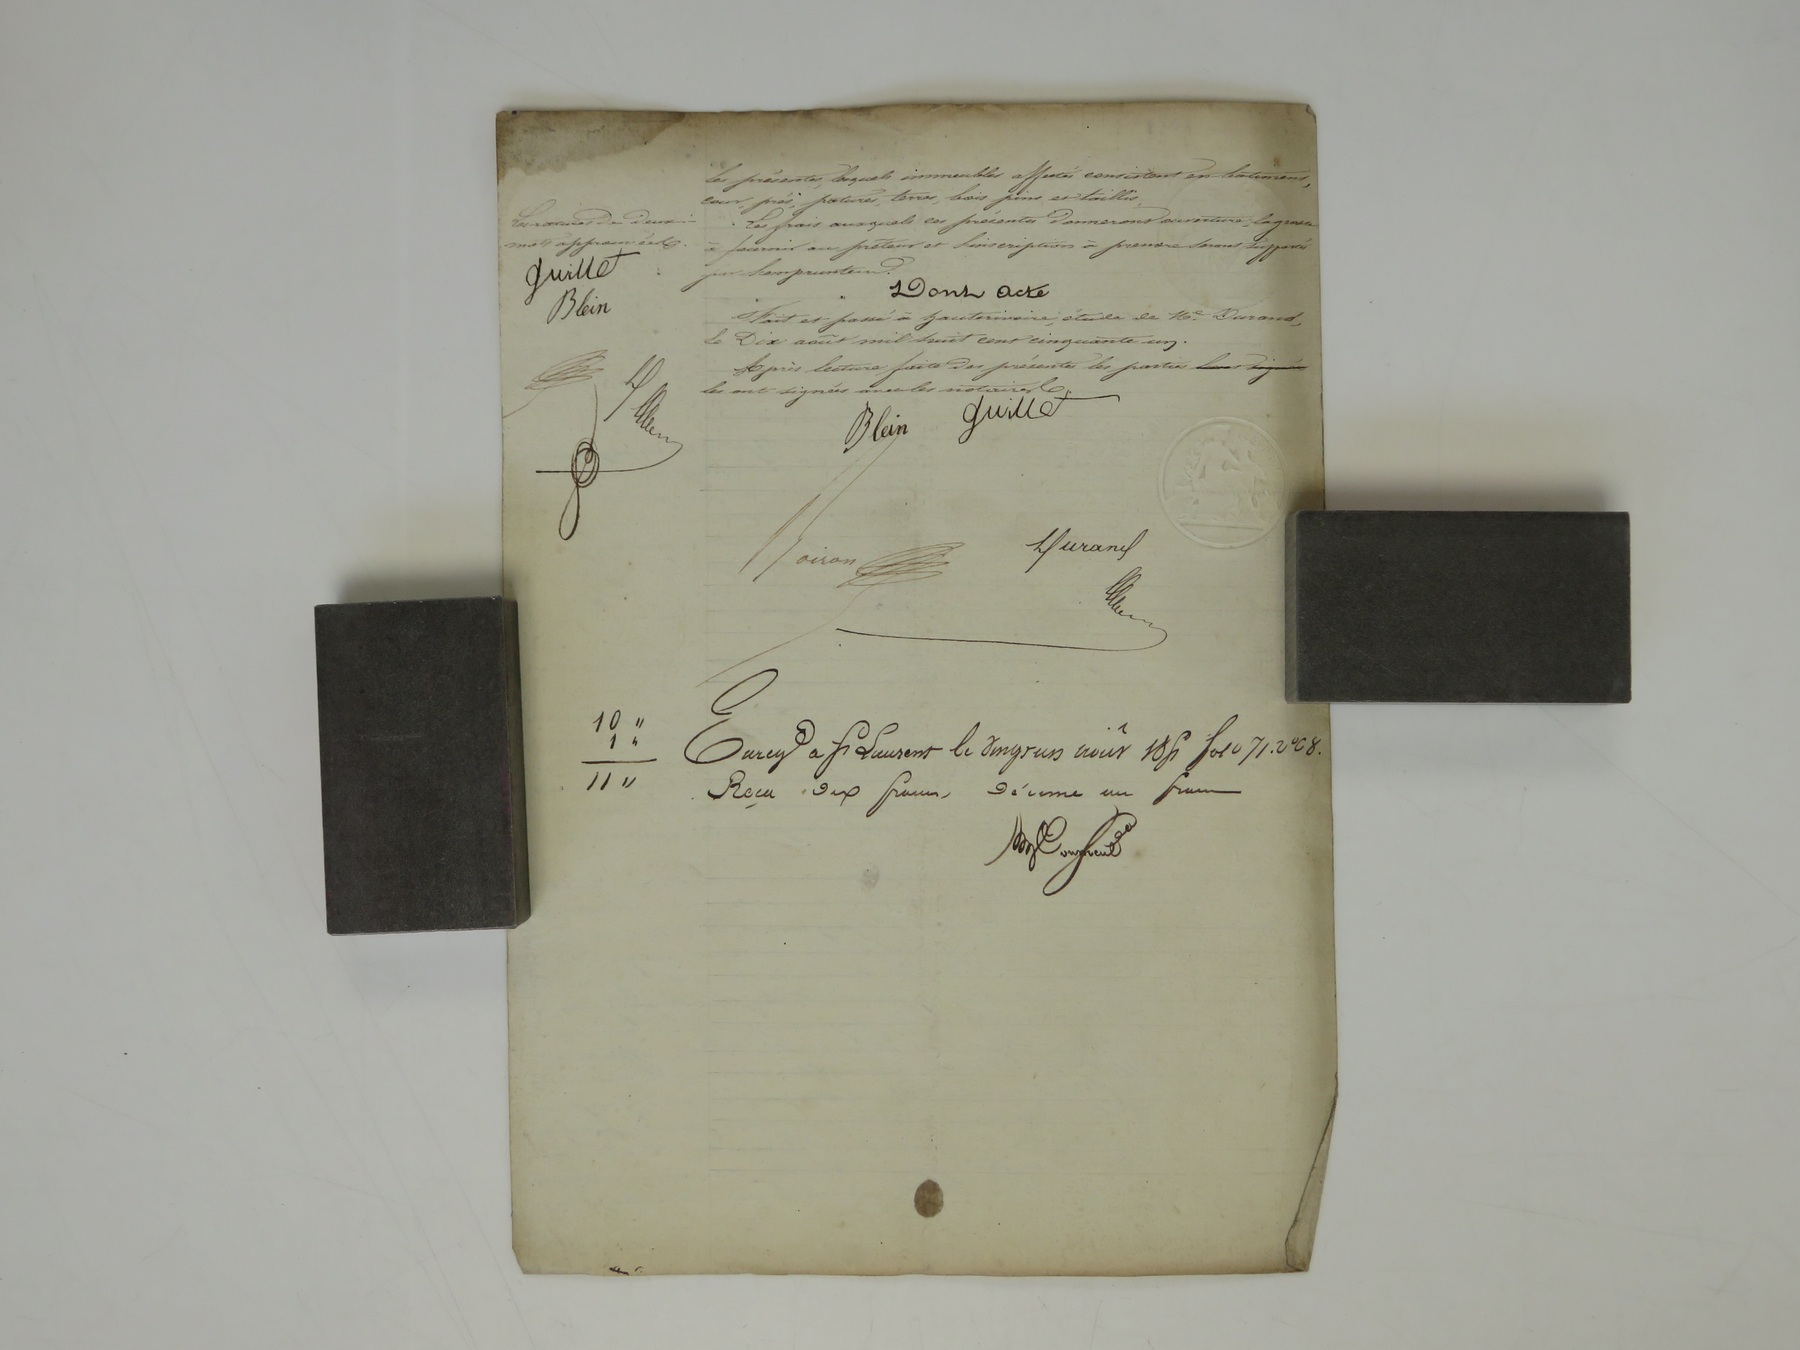 les présentes, lesquels immeubles affectés consistent en batiments,
cour, prés, pature, terres, bois pins et taillis.
Les frais auxquels ces présentes donneront ouverture, la grosse
à fournir au prêteur et l'inscription à prendre seront supportés
par l'emprunteur.
Dont acte
Fait et passé à hauterivoire, étude de Me Durand,
le Dix août mil huit cent cinquante un.
Après lecture faite des présentes les parties
les ont signées avec les notaires.
Blein Guillet
Durand
La rature de deux
mots approuvée.
Guillet
Blein
10 "
1 "
11 "
à St Laurent le vingt un août folio 71.
Reçu dix francs, décime un franc